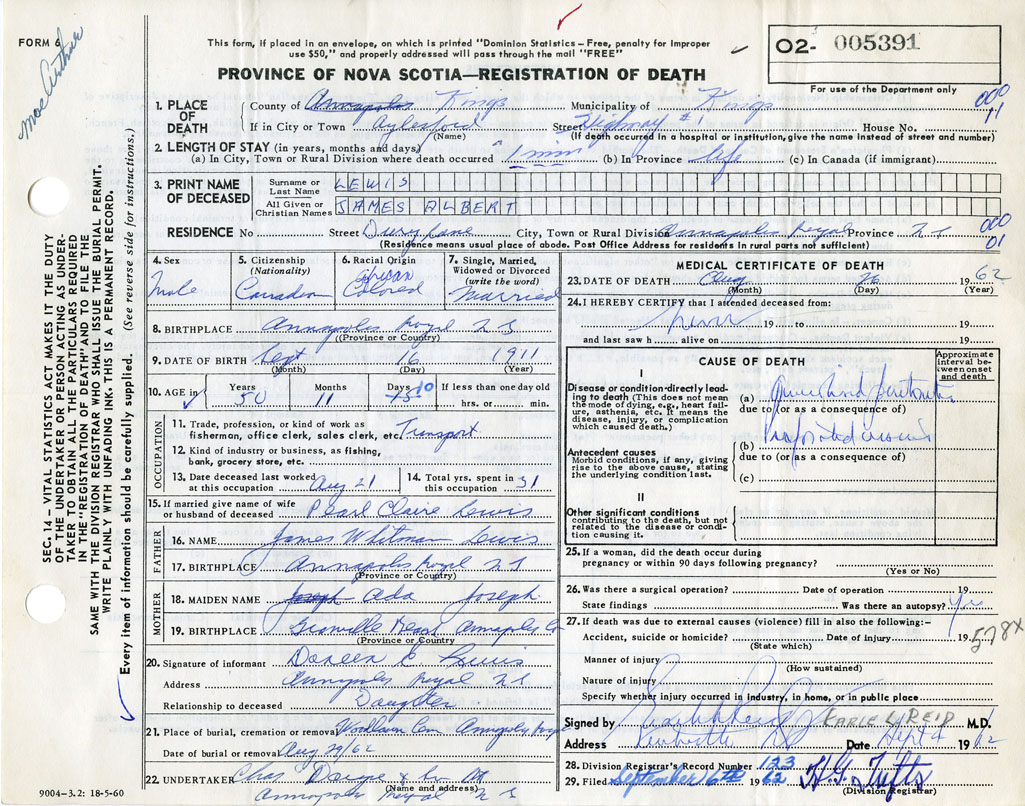 FORM 6
MacArthur
This form, if placed in an envelope, on which is printed "Dominion Statistics – Free, penalty for improper
use $50," and properly addressed will pass through the mail "FREE"
O2- 005391
For use of the Department only
PROVINCE OF NOVA SCOTIA—REGISTRATION OF DEATH
000
11
SEC. 14 – VITAL STATISTICS ACT MAKES IT THE DUTY
OF THE UNDERTAKER OR PERSON ACTING AS UNDER-
TAKER TO OBTAIN ALL THE PARTICULARS REQUIRED
IN THE "REGISTRATION OF DEATH" AND TO FILE THE
SAME WITH THE DIVISION REGISTRAR WHO SHALL ISSUE THE BURIAL PERMIT.
WRITE PLAINLY WITH UNFADING INK. THIS IS A PERMANENT RECORD.
Every item of information should be carefully supplied. (See reverse side for instructions.)
1. PLACE OF DEATH County of Annapolis Kings Municipality of Kings
If in City or Town Aylesford (Name) Street Highway #1 House No.
(If death occurred in a hospital or institution, give the name instead of street and number)
2. LENGTH OF STAY (in years, months and days)
(a) In City, Town or Rural Division where death occurred 1 min (b) In Province life (c) In Canada (if immigrant)
3. PRINT NAME OF DECEASED
Surname or Last Name LEWIS
All Given or Christian Names JAMES ALBERT
RESIDENCE No Street Dury Lane City, Town or Rural Division Annapolis Royal Province N S
(Residence means usual place of abode. Post Office Address for residents in rural parts not sufficient)
000
01
4. Sex Male
5. Citizenship (Nationality) Canadian
6. Racial Origin African Colored
7. Single, Married, Widowed or Divorced (write the word) Married
8. BIRTHPLACE Annapolis Royal N S
(Province or Country)
9. DATE OF BIRTH Sept 16 1911
(Month) (Day) (Year)
10. AGE in Years 50 Months 11 Days 15 10 If less than one day old
hrs. or min.
OCCUPATION
11. Trade, profession, or kind of work as
fisherman, office clerk, sales clerk, etc. Transport
12. Kind of industry or business, as fishing,
bank, grocery store, etc.
13. Date deceased last worked at this occupation Aug 21 14. Total yrs. spent in this occupation 31
15. If married give name of wife or husband of deceased Pearl Claire Lewis
FATHER
16. NAME James Whitman Lewis
17. BIRTHPLACE Annapolis Royal N S
(Province or Country)
MOTHER
18. MAIDEN NAME Joseph Ada Joseph
19. BIRTHPLACE Granville Annapolis Co
(Province or Country)
20. Signature of informant Doreen C. Lewis
Address Annapolis Royal N S
Relationship to deceased Daughter
21. Place of burial, cremation or removal Woodlawn Cem Annapolis Royal
Date of burial or removal Aug 29/62
22. UNDERTAKER Chas
(Name and address)
Annapolis Royal N S
9004-3.2: 18-5-60
MEDICAL CERTIFICATE OF DEATH
23. DATE OF DEATH Aug 26 1962
(Month) (Day) (Year)
24. I HEREBY CERTIFY that I attended deceased from:
never 19 to 19
and last saw h alive on 19
CAUSE OF DEATH
Approximate interval between onset and death
I
Disease or condition-directly lead-
ing to death (This does not mean
the mode of dying, e.g., heart fail-
ure, asthenia, etc. It means the
disease, injury, or complication
which caused death.)
(a) Generalized peritonitis
due to (or as a consequence of)
(b) Perforated
due to (or as a consequence of)
(c)
Antecedent causes
Morbid conditions, if any, giving
rise to the above cause, stating
the underlying condition last.
II
Other significant conditions
contributing to the death, but not
related to the disease or condi-
tion causing it.
25. If a woman, did the death occur during
pregnancy or within 90 days following pregnancy?
(Yes or No)
26. Was there a surgical operation? Date of operation 19
State findings Was there an autopsy? Yes
27. If death was due to external causes (violence) fill in also the following:-
Accident, suicide or homicide? Date of injury 19
(State which)
578X
Manner of injury
(How sustained)
Nature of injury
Specify whether injury occurred in industry, in home, or in public place
Signed by EARLE L REID M.D.
Address Kentville N S Date Sept 4 1962
28. Division Registrar's Record Number 123
29. Filed September 6th 1962 H. G. Tufts
(Division Registrar)